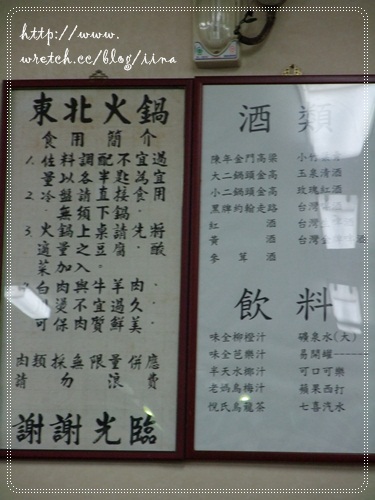 http://www.
wretch.cc/blog/iina
東北火鍋
食用簡介
1. 佐料調配不宜過
量以各半匙為宜
2. 冷盤請直接食用
無須下鍋。
3. 火鍋上桌請先將
適量之豆腐、酸
菜加入。
白肉與牛羊肉
燙不宜過久
可保肉質鮮美
肉類採無限量供應
請勿浪費
謝謝光臨
酒類
陳年金門高粱
大二鍋頭金高
小二鍋頭高粱
黑牌約翰走路
紅酒
黃酒
參茸酒
小竹
玉泉清酒
玫瑰紅酒
台灣
台灣金
飲料
味全柳橙汁
味全芭樂汁
半天水椰汁
老媽烏梅汁
悅氏烏龍茶
礦泉水(大)
易開罐-----
可口可樂
蘋果西打
七喜汽水